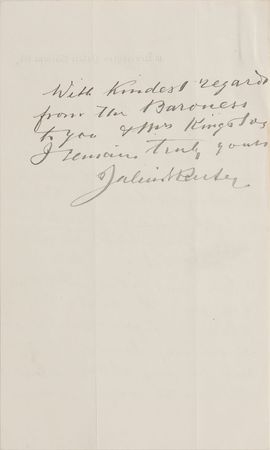 With kindest regards
from the Baroness
to you & Mrs Kingston
I remain truly yours